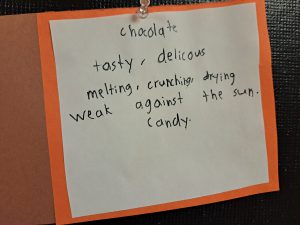 chocolate
tasty, delicous
melting, crunching, drying
weak against the sun.
candy.